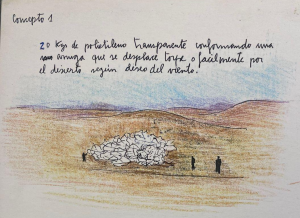 Concepto 1
20 Kgs de polietileno transparente conformando una
amiga que se desplace torpe o facilmente por
el desierto según deseo del viento.